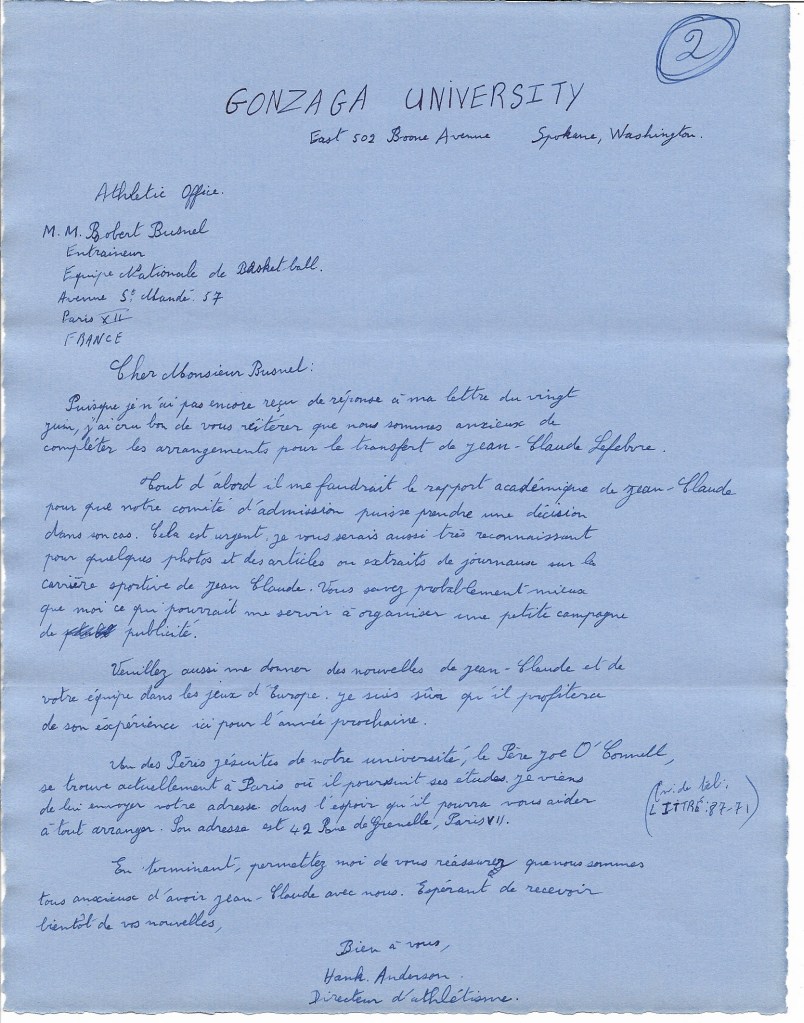 2
GONZAGA UNIVERSITY
East 502 Boone Avenue Spokane, Washington.
Athletic Office.
M. M. Robert Busnel
Entraineur
Equipe Nationale de Basket-ball.
Avenue St Mandé. 57
Paris XII
FRANCE
Cher Monsieur Busnel:
Puisque je n'ai pas encore reçu de réponse à ma lettre du vingt
juin, j'ai cru bon de vous réitérer que nous sommes anxieux de
compléter les arrangements pour le transfert de Jean-Claude Lefebvre.
Tout d'abord il me faudrait le rapport académique de Jean-Claude
pour que notre comité d'admission puisse prendre une décision
dans son cas. Cela est urgent. Je vous serais aussi très reconnaissant
pour quelques photos et des articles ou extraits de journaux sur la
carrière sportive de Jean Claude. Vous savez probablement mieux
que moi ce qui pourrait me servir à organiser une petite campagne
de publicité.
Veuillez aussi me donner des nouvelles de Jean-Claude et de
votre équipe dans les jeux d'Europe. Je suis sûr qu'il profitera
de son expérience ici pour l'année prochaine.
Un des Pères jésuites de notre université, le Père Joe O'Connell,
se trouve actuellement à Paris où il poursuit ses études. Je viens
de lui envoyer votre adresse dans l'espoir qu'il pourra vous aider
à tout arranger. Son adresse est 42 Rue de Grenelle, Paris VII.
(No. de tél:
LITTRÉ: 87-71)
En terminant, permettez moi de vous réassurez que nous sommes
tous anxieux d'avoir Jean-Claude avec nous. Espérant de recevoir
bientôt de vos nouvelles,
Bien à vous,
Hank. Anderson.
Directeur d'athlétisme.